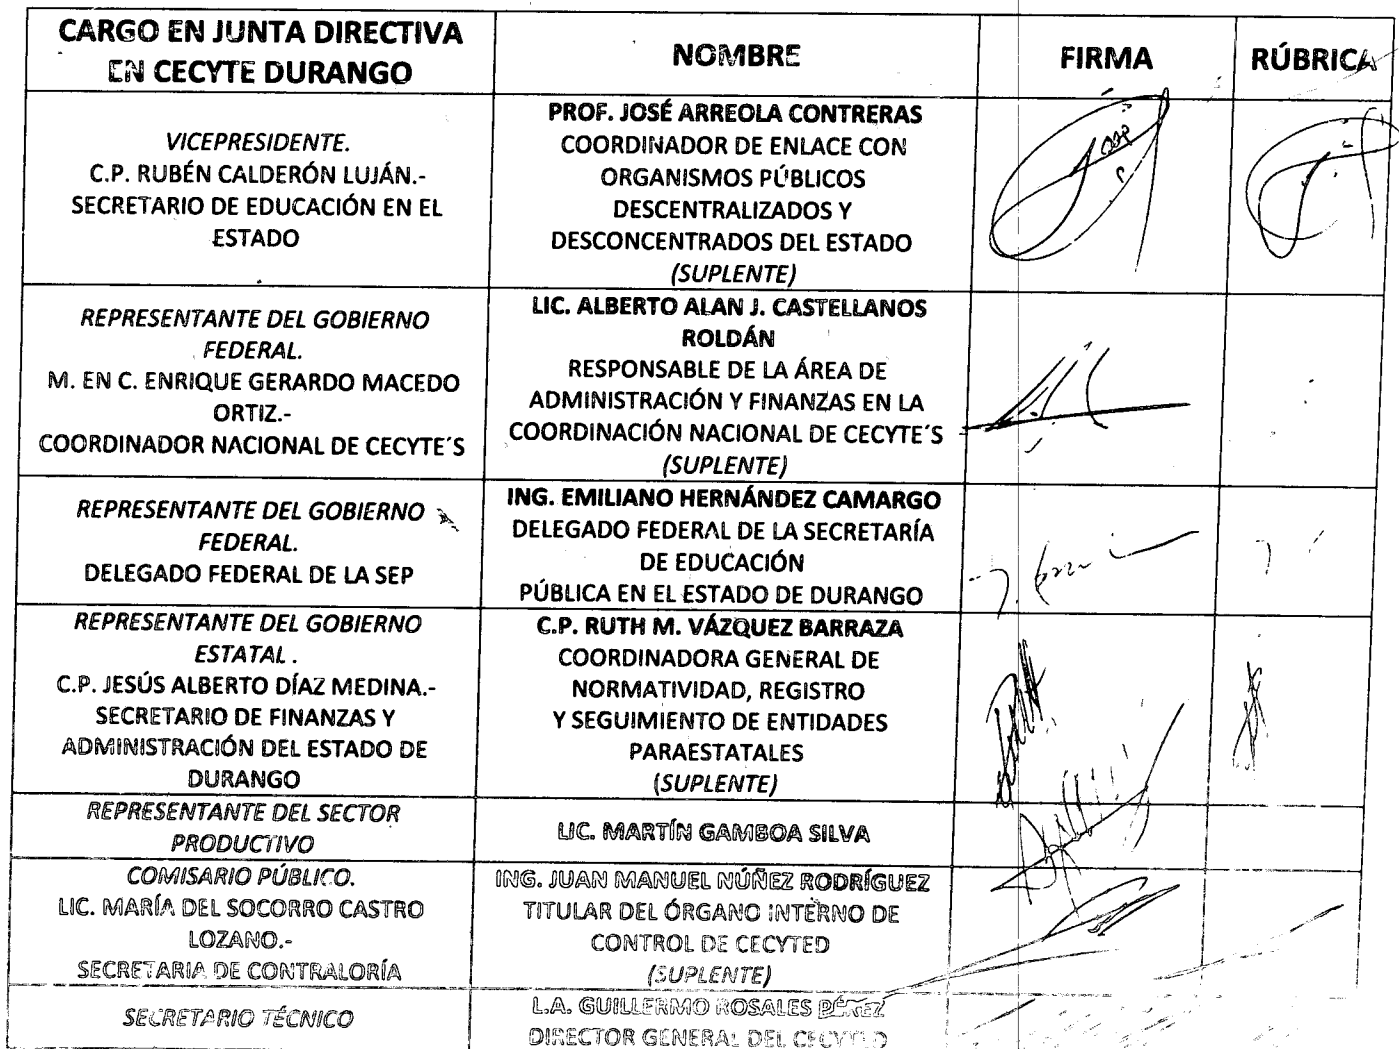 CARGO EN JUNTA DIRECTIVA
EN CECYTE DURANGO
NOMBRE
FIRMA
RÚBRICA
VICEPRESIDENTE.
C.P. RUBÉN CALDERÓN LUJÁN.-
SECRETARIO DE EDUCACIÓN EN EL
ESTADO
PROF. JOSÉ ARREOLA CONTRERAS
COORDINADOR DE ENLACE CON
ORGANISMOS PÚBLICOS
DESCENTRALIZADOS Y
DESCONCENTRADOS DEL ESTADO
(SUPLENTE)
REPRESENTANTE DEL GOBIERNO
FEDERAL.
M. EN C. ENRIQUE GERARDO MACEDO
ORTIZ.-
COORDINADOR NACIONAL DE CECYTE´S
LIC. ALBERTO ALAN J. CASTELLANOS
ROLDÁN
RESPONSABLE DE LA ÁREA DE
ADMINISTRACIÓN Y FINANZAS EN LA
COORDINACIÓN NACIONAL DE CECYTE´S
(SUPLENTE)
REPRESENTANTE DEL GOBIERNO
FEDERAL.
DELEGADO FEDERAL DE LA SEP
ING. EMILIANO HERNÁNDEZ CAMARGO
DELEGADO FEDERAL DE LA SECRETARÍA
DE EDUCACIÓN
PÚBLICA EN EL ESTADO DE DURANGO
REPRESENTANTE DEL GOBIERNO
ESTATAL .
C.P. JESÚS ALBERTO DÍAZ MEDINA.-
SECRETARIO DE FINANZAS Y
ADMINISTRACIÓN DEL ESTADO DE
DURANGO
C.P. RUTH M. VÁZQUEZ BARRAZA
COORDINADORA GENERAL DE
NORMATIVIDAD, REGISTRO
Y SEGUIMIENTO DE ENTIDADES
PARAESTATALES
(SUPLENTE)
REPRESENTANTE DEL SECTOR
PRODUCTIVO
LIC. MARTÍN GAMBOA SILVA
COMISARIO PÚBLICO.
LIC. MARÍA DEL SOCORRO CASTRO
LOZANO.-
SECRETARIA DE CONTRALORÍA
ING. JUAN MANUEL NÚÑEZ RODRÍGUEZ
TITULAR DEL ÓRGANO INTERNO DE
CONTROL DE CECYTED
(SUPLENTE)
SECRETARIO TÉCNICO
L.A. GUILLERMO ROSALES PÉREZ
DIRECTOR GENERAL DEL CECYTED